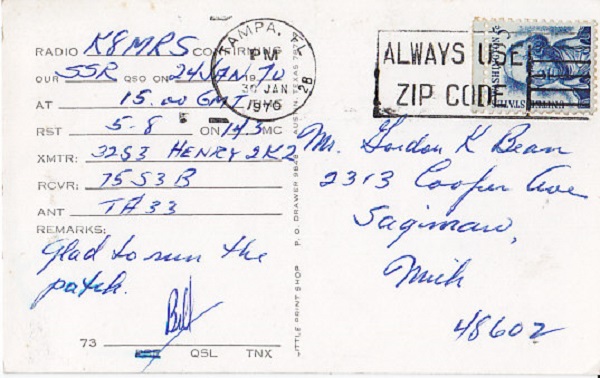 RADIO K8MRS CONFIRMING
OUR SSR QSO ON 24 JAN 1970
AT 15.00 GMT
RST 5-8 ON 14.3 MC
XMTR: 32S3 HENRY 2K2
RCVR: 75S3B
ANT TA33
REMARKS:
Glad to run the
patch.
Bill
73
QSL TNX
LITTLE PRINT SHOP P. O. DRAWER AUSTIN, TEXAS
TAMPA,
PM
30 JAN
1970
28
ALWAYS USE
ZIP CODE
WASHINGTON
UNITED STATES
Mr. Gordon K Bean
2313 Cooper Ave
Saginaw,
Mich
48602